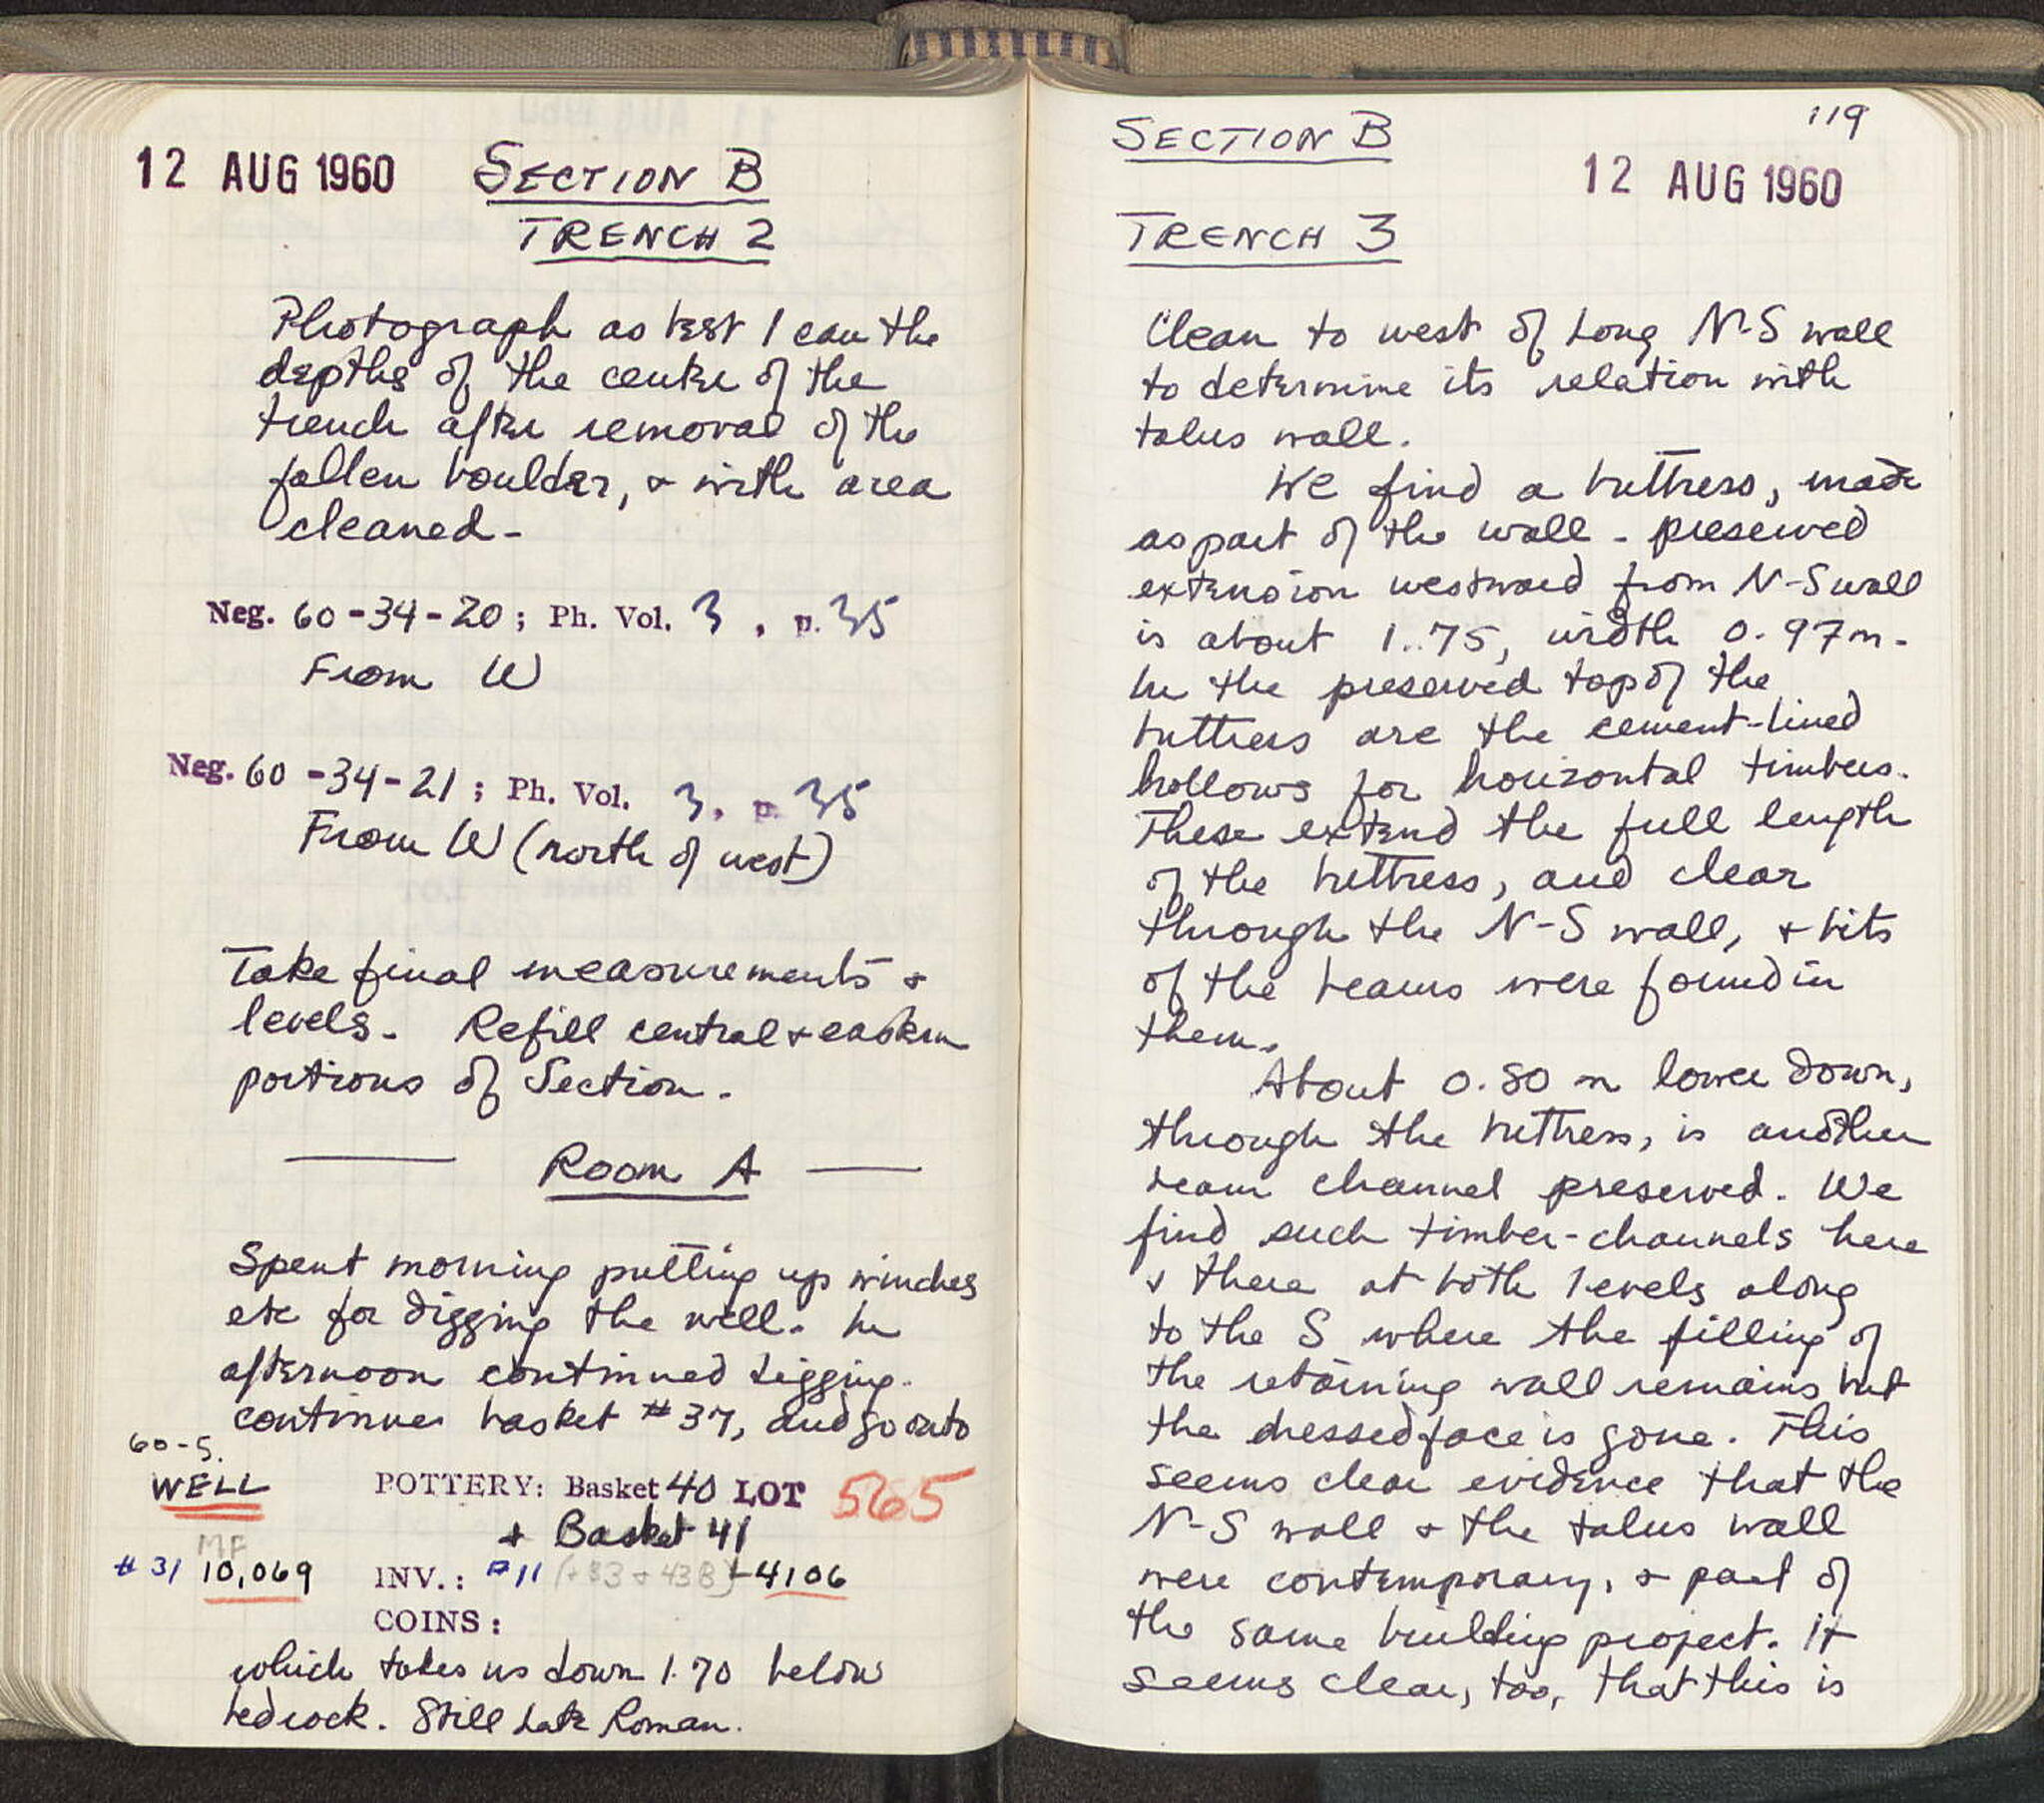 12 AUG 1960 SECTION B
TRENCH 2
Photograph as best I can the
depths of the center of the
trench after removal of the
fallen boulder, & with area
cleaned -
Neg. 60-34-20; Ph. Vol. 3, p. 35
From W
Neg. 60-34-21; Ph. Vol. 3, p. 35
From W (north of west)
Take final measurements &
levels. Refill central & eastern
portions of Section.
Room A
Spent morning putting up winches
etc for digging the well. In
afternoon continued digging.
continue basket #37, and go onto
60-5.
WELL POTTERY: Basket 40 LOT 565
+ Basket 41
MF
#31 10,069 INV.: P11 (+33 + 43B) L4106
COINS:
which takes us down 1.70 below
bedrock. Still Late Roman.
119
SECTION B
12 AUG 1960
TRENCH 3
Clean to west of Long N-S wall
to determine its relation with
talus wall.
We find a buttress, made
as part of the wall - preserved
extension westward from N-S wall
is about 1.75, width 0.97m.
In the preserved top of the
buttress are the cement-lined
hollows for horizontal timbers.
These extend the full length
of the buttress, and clear
through the N-S wall, & bits
of the beams were found in
them.
About 0.80 m lower down,
through the buttress, is another
beam channel preserved. We
find such timber-channels here
& there at both levels along
to the S where the filling of
the retaining wall remains but
the dressed face is gone. This
seems clear evidence that the
N-S wall & the talus wall
were contemporary, & part of
the same building project. It
seems clear, too, that this is